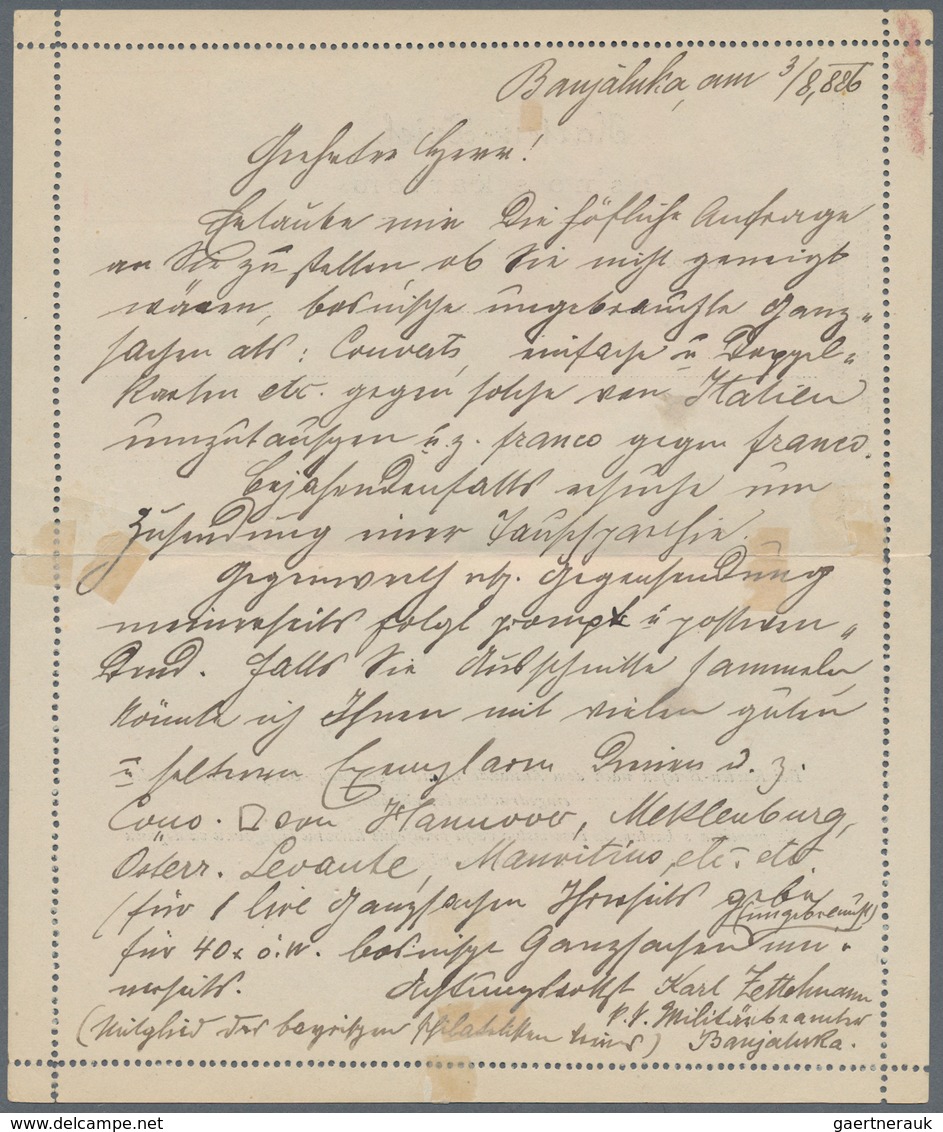 Banjaluka, am 3/8, 886
Geehrter Herr!
Erlaube mir die höfliche Anfrage
an Sie zu stellen, ob Sie nicht geneigt
wären, bosnische ungebrauchte Ganz„
sachen als: Couverts, einfache u Doppel„
karten etc. gegen solche von Italien
umzutauschen u. z. franco gegen franco.
Bejahendenfalls ersuche um
Zusendung einer Tauschparthie.
Gegenwerth resp. Gegensendung
meinerseits folgt prompt u postwen„
dend. Falls Sie Ausschnitte sammeln
könnte ich Ihnen mit vielen guten
u seltenen Exemplaren dienen u. z.
Couv. □ von Hannover, Meklenburg,
Österr. Levante, Mauritius, etc. etc
(für 1 lire Ganzsachen Ihrseits gebe
(ungebraucht)
für 40x ö. W. bosnische Ganzsachen mei„
nerseits.
Achtungsvollst Karl Zettelmann
k. k. Militärbeamter
(Mitglied des bayrischen Philatelisten Vereins) Banjaluka.
gaertnerauk
delcampe.net